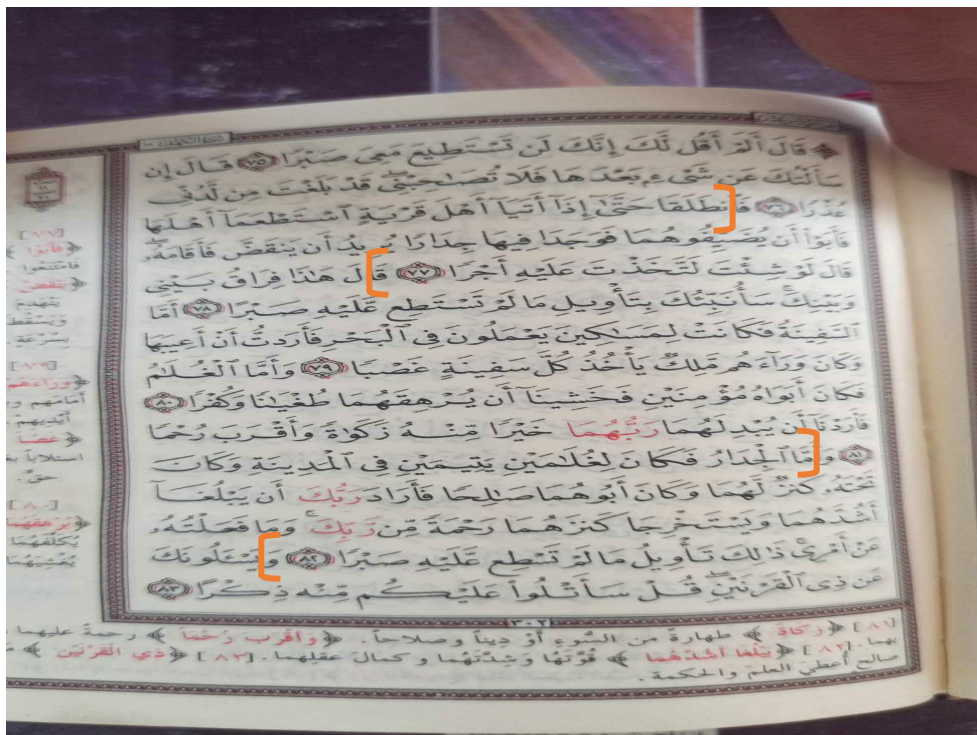 قَالَ أَلَمْ أَقُل لَّكَ إِنَّكَ لَن تَسْتَطِيعَ مَعِىَ صَبْرًا ۝٧٥ قَالَ إِن
سَأَلْتُكَ عَن شَىْءٍۭ بَعْدَهَا فَلَا تُصَـٰحِبْنِى ۖ قَدْ بَلَغْتَ مِن لَّدُنِّى
عُذْرًا ۝٧٦ فَٱنطَلَقَا حَتَّىٰٓ إِذَآ أَتَيَآ أَهْلَ قَرْيَةٍ ٱسْتَطْعَمَآ أَهْلَهَا
فَأَبَوْا۟ أَن يُضَيِّفُوهُمَا فَوَجَدَا فِيهَا جِدَارًا يُرِيدُ أَن يَنقَضَّ فَأَقَامَهُۥ ۖ
قَالَ لَوْ شِئْتَ لَتَّخَذْتَ عَلَيْهِ أَجْرًا ۝٧٧ قَالَ هَـٰذَا فِرَاقُ بَيْنِى
وَبَيْنِكَ ۚ سَأُنَبِّئُكَ بِتَأْوِيلِ مَا لَمْ تَسْتَطِع عَّلَيْهِ صَبْرًا ۝٧٨ أَمَّا
ٱلسَّفِينَةُ فَكَانَتْ لِمَسَـٰكِينَ يَعْمَلُونَ فِى ٱلْبَحْرِ فَأَرَدتُّ أَنْ أَعِيبَهَا
وَكَانَ وَرَآءَهُم مَّلِكٌ يَأْخُذُ كُلَّ سَفِينَةٍ غَصْبًا ۝٧٩ وَأَمَّا ٱلْغُلَـٰمُ
فَكَانَ أَبَوَاهُ مُؤْمِنَيْنِ فَخَشِينَآ أَن يُرْهِقَهُمَا طُغْيَـٰنًا وَكُفْرًا ۝٨٠
فَأَرَدْنَآ أَن يُبْدِلَهُمَا رَبُّهُمَا خَيْرًا مِّنْهُ زَكَوٰةً وَأَقْرَبَ رُحْمًا
۝٨١ وَأَمَّا ٱلْجِدَارُ فَكَانَ لِغُلَـٰمَيْنِ يَتِيمَيْنِ فِى ٱلْمَدِينَةِ وَكَانَ
تَحْتَهُۥ كَنزٌ لَّهُمَا وَكَانَ أَبُوهُمَا صَـٰلِحًا فَأَرَادَ رَبُّكَ أَن يَبْلُغَآ
أَشُدَّهُمَا وَيَسْتَخْرِجَا كَنزَهُمَا رَحْمَةً مِّن رَّبِّكَ ۚ وَمَا فَعَلْتُهُۥ
عَنْ أَمْرِى ۚ ذَٰلِكَ تَأْوِيلُ مَا لَمْ تَسْطِع عَّلَيْهِ صَبْرًا ۝٨٢ وَيَسْـَٔلُونَكَ
عَن ذِى ٱلْقَرْنَيْنِ ۖ قُلْ سَأَتْلُوا۟ عَلَيْكُم مِّنْهُ ذِكْرًا ۝٨٣
٣٠٢
[٨١] ﴿زكاة﴾ طهارةً من السُّوءِ أَوْ دِيناً وصلاحاً. ﴿وأقرب رُحْماً﴾ رحمةً عليهما
بهما. [٨٢] ﴿يبْلُغا أشُدّهما﴾ قُوَّتَهُما وشِدَّتَهُما وكمالَ عقلِهما. [٨٣] ﴿ذي القرْنَيْن﴾
صالح أُعطيَ العلمَ والحكمة.
[٧٧]
﴿فأبوا﴾
فامتنعوا
﴿ينقض
ينهدم
ويسقط
بسرعة.
[٧٩]
﴿وراءهم
أمامهم
﴿غصباً
استلاباً
حق.
[٨٠]
﴿يرهقهما
يكلفهما
يُغشيهما